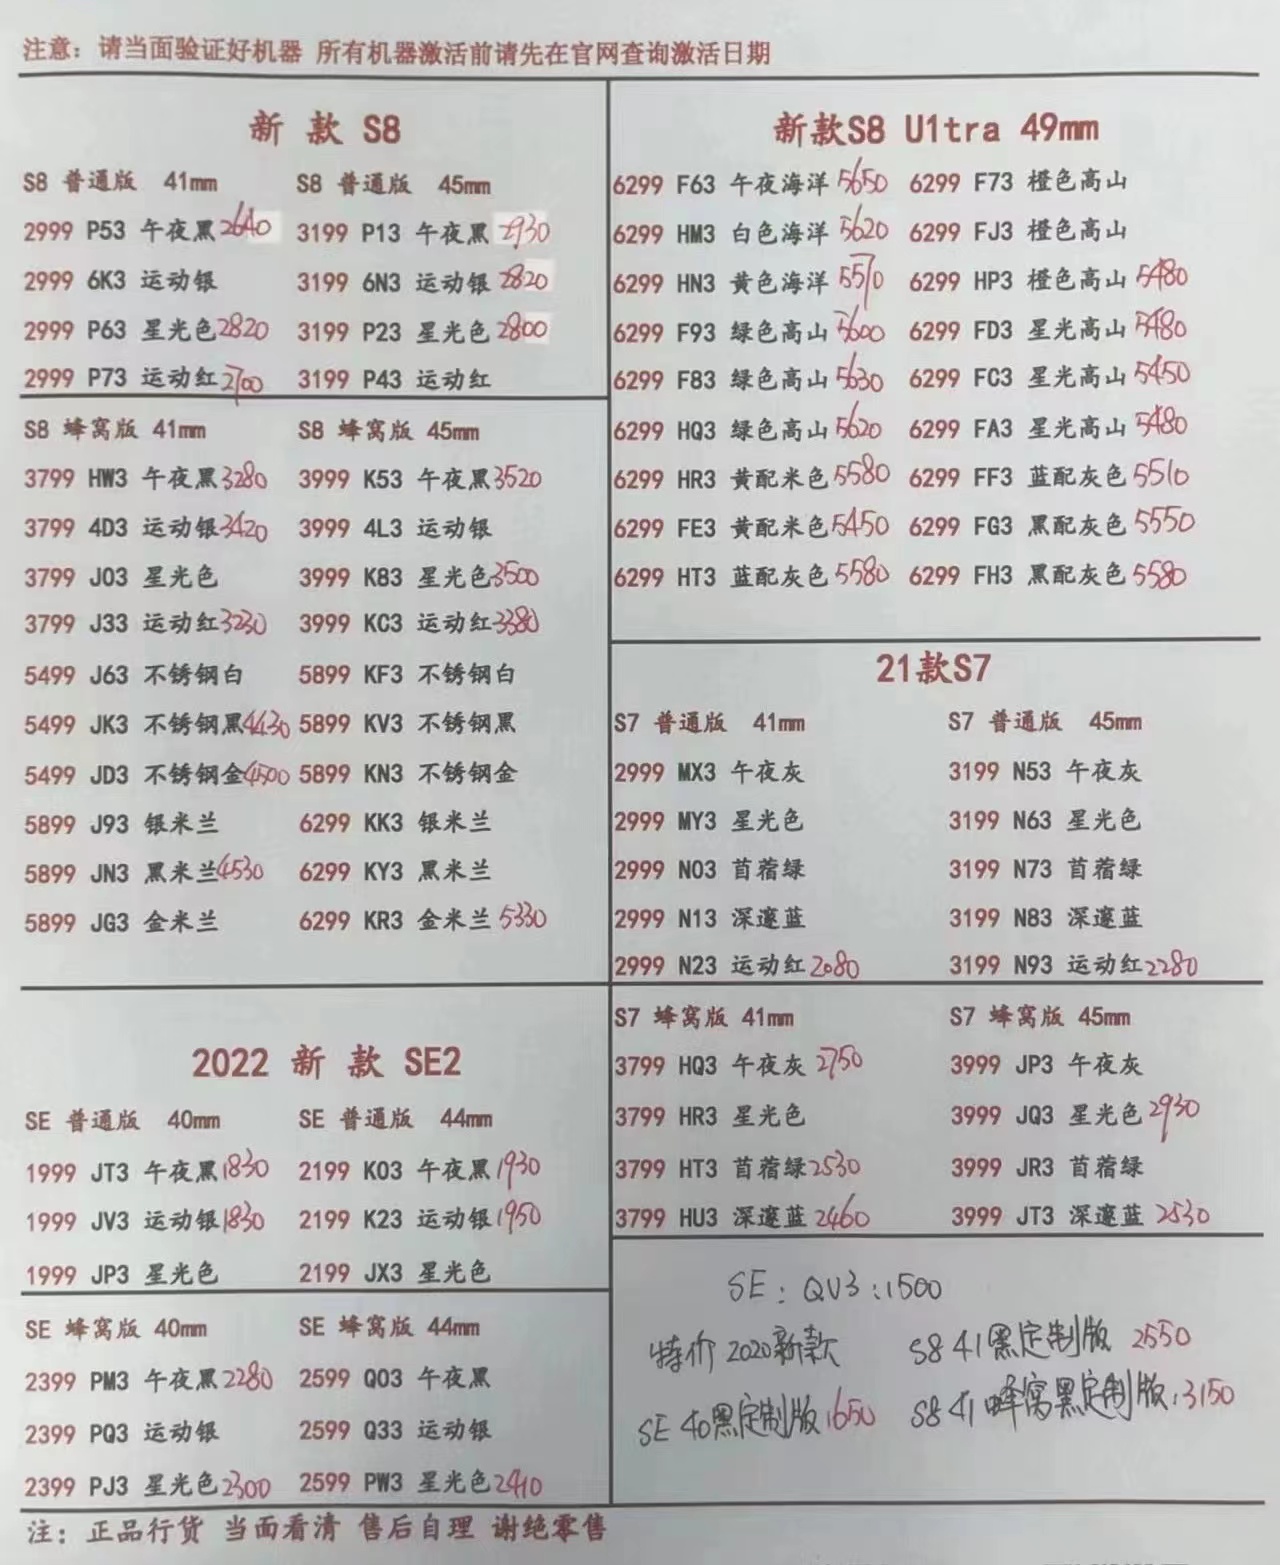 注意: 请当面验证好机器 所有机器激活前请先在官网查询激活日期
新 款 S8
S8 普通版 41mm S8 普通版 45mm
2999 P53 午夜黑 2640 3199 P13 午夜黑 2930
2999 6K3 运动银 3199 6N3 运动银 2820
2999 P63 星光色 2820 3199 P23 星光色 2800
2999 P73 运动红 2700 3199 P43 运动红
S8 蜂窝版 41mm S8 蜂窝版 45mm
3799 HW3 午夜黑 3280 3999 K53 午夜黑 3520
3799 4D3 运动银 3420 3999 4L3 运动银
3799 J03 星光色 3999 K83 星光色 3500
3799 J33 运动红 3230 3999 KC3 运动红 3380
5499 J63 不锈钢白 5899 KF3 不锈钢白
5499 JK3 不锈钢黑 4430 5899 KV3 不锈钢黑
5499 JD3 不锈钢金 4500 5899 KN3 不锈钢金
5899 J93 银米兰 6299 KK3 银米兰
5899 JN3 黑米兰 4530 6299 KY3 黑米兰
5899 JG3 金米兰 6299 KR3 金米兰 5330
2022 新 款 SE2
SE 普通版 40mm SE 普通版 44mm
1999 JT3 午夜黑 1830 2199 K03 午夜黑 1930
1999 JV3 运动银 1830 2199 K23 运动银 1950
1999 JP3 星光色 2199 JX3 星光色
SE 蜂窝版 40mm SE 蜂窝版 44mm
2399 PM3 午夜黑 2280 2599 Q03 午夜黑
2399 PQ3 运动银 2599 Q33 运动银
2399 PJ3 星光色 2300 2599 PW3 星光色 2410
新款S8 U1tra 49mm
6299 F63 午夜海洋 5650 6299 F73 橙色高山
6299 HM3 白色海洋 5620 6299 FJ3 橙色高山
6299 HN3 黄色海洋 5570 6299 HP3 橙色高山 5480
6299 F93 绿色高山 5600 6299 FD3 星光高山 5480
6299 F83 绿色高山 5630 6299 FC3 星光高山 5450
6299 HQ3 绿色高山 5620 6299 FA3 星光高山 5480
6299 HR3 黄配米色 5580 6299 FF3 蓝配灰色 5510
6299 FE3 黄配米色 5450 6299 FG3 黑配灰色 5550
6299 HT3 蓝配灰色 5580 6299 FH3 黑配灰色 5580
21款S7
S7 普通版 41mm S7 普通版 45mm
2999 MX3 午夜灰 3199 N53 午夜灰
2999 MY3 星光色 3199 N63 星光色
2999 N03 苜蓿绿 3199 N73 苜蓿绿
2999 N13 深邃蓝 3199 N83 深邃蓝
2999 N23 运动红 2080 3199 N93 运动红 2280
S7 蜂窝版 41mm S7 蜂窝版 45mm
3799 HQ3 午夜灰 2750 3999 JP3 午夜灰
3799 HR3 星光色 3999 JQ3 星光色 2930
3799 HT3 苜蓿绿 2530 3999 JR3 苜蓿绿
3799 HU3 深邃蓝 2460 3999 JT3 深邃蓝 2530
SE: QV3:1500
特价 2020新款 S8 41黑定制版 2550
SE 40黑定制版 1650 S8 41蜂窝黑定制版:3150
注: 正品行货 当面看清 售后自理 谢绝零售